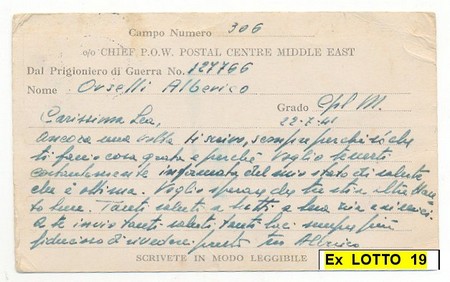 Campo Numero 306
c/o CHIEF P.O.W. POSTAL CENTRE MIDDLE EAST
Dal Prigioniero di Guerra No. 127766
Nome Orselli Alberico
Grado Cpl M.
22-7-41
Carissima Lea,
Ancora una volta ti scrivo, sempre perché so che
ti faccio cosa grata e perché voglio tenerti
costantemente informata del mio stato di salute
che è ottima. Voglio sperare che tu stia
bene. Tanti saluti a tutti a
A te invio tanti saluti, tanti baci sempre più
fiducioso di rivederci presto tuo Alberico
SCRIVETE IN MODO LEGGIBILE
Ex LOTTO 19